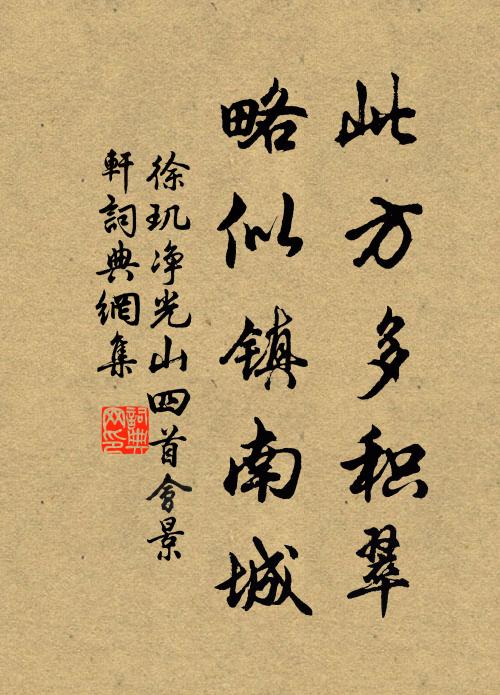 此方多积翠
略似镇南城
徐玑净光山四首會景
軒詞典網集
詞典网印